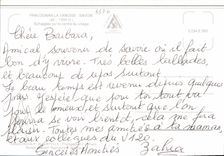 Chère Barbara,
Amical souvenir de Savoie où il fait
bon d'y vivre. Très belles ballades,
et beaucoup de repos surtout.
Le beau temps est revenu depuis quelques
jours. J'espère que pour toi tout va
pour le mieux et surtout que l'on
pourra se voir bientôt, cela me fera
plaisir. Toutes mes amitiés à ta maman,
et aux collègues du V120.
Sincères Amitiés